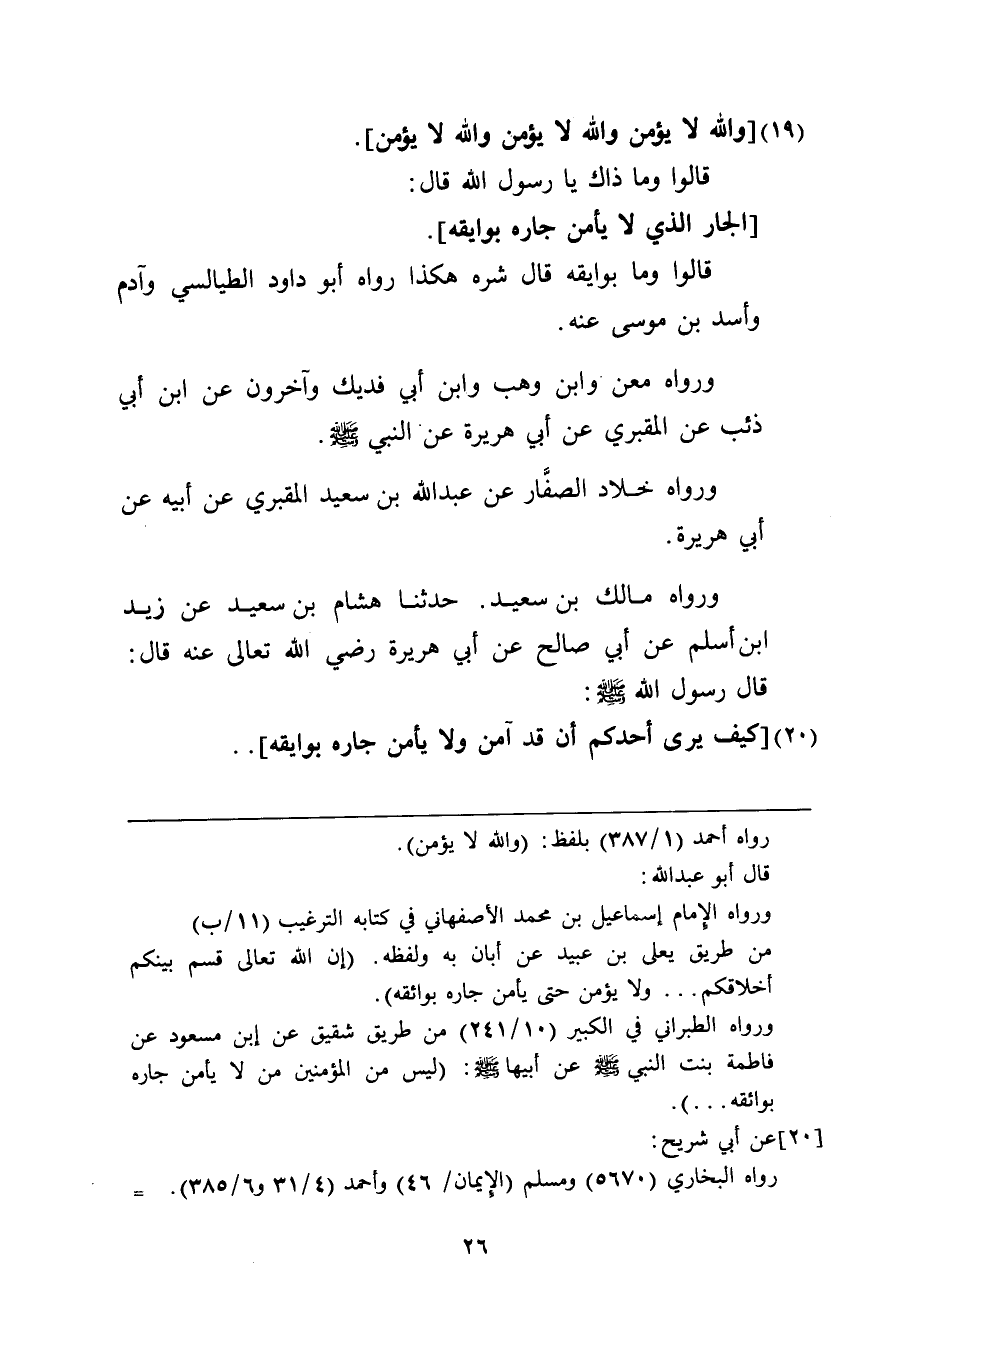 (١٩)[والله لا يؤمن والله لا يؤمن والله لا يؤمن].
قالوا وما ذاك يا رسول الله قال:
[الجار الذي لا يأمن جاره بوايقه].
قالوا وما بوايقه قال شره هكذا رواه أبو داود الطيالسي وآدم
وأسد بن موسى عنه.
ورواه معن وابن وهب وابن أبي فديك وآخرون عن ابن أبي
ذئب عن المقبري عن أبي هريرة عن النبي ﷺ.
ورواه خـلاد الصفَّار عن عبدالله بن سعيد المقبري عن أبيه عن
أبي هريرة.
ورواه مـالك بن سعيـد. حدثنـا هشام بن سعيـد عن زيـد
ابن أسلم عن أبي صالح عن أبي هريرة رضي الله تعالى عنه قال:
قال رسول الله ﷺ:
(٢٠)[كيف يرى أحدكم أن قد آمن ولا يأمن جاره بوايقه]. .
رواه أحمد (٣٨٧/١) بلفظ: (والله لا يؤمن).
قال أبو عبدالله:
ورواه الإمام إسماعيل بن محمد الأصفهاني في كتابه الترغيب (١١/ب)
من طريق يعلى بن عبيد عن أبان به ولفظه. (إن الله تعالى قسم بينكم
أخلاقكم... ولا يؤمن حتى يأمن جاره بوائقه).
ورواه الطبراني في الكبير (٢٤١/١٠) من طريق شقيق عن إبن مسعود عن
فاطمة بنت النبي ﷺ عن أبيها ﷺ: (ليس من المؤمنين من لا يأمن جاره
بوائقه...).
[٢٠]عن أبي شريح:
رواه البخاري (٥٦٧٠) ومسلم (الإيمان/ ٤٦) وأحمد (٣١/٤ و٣٨٥/٦). =
٢٦